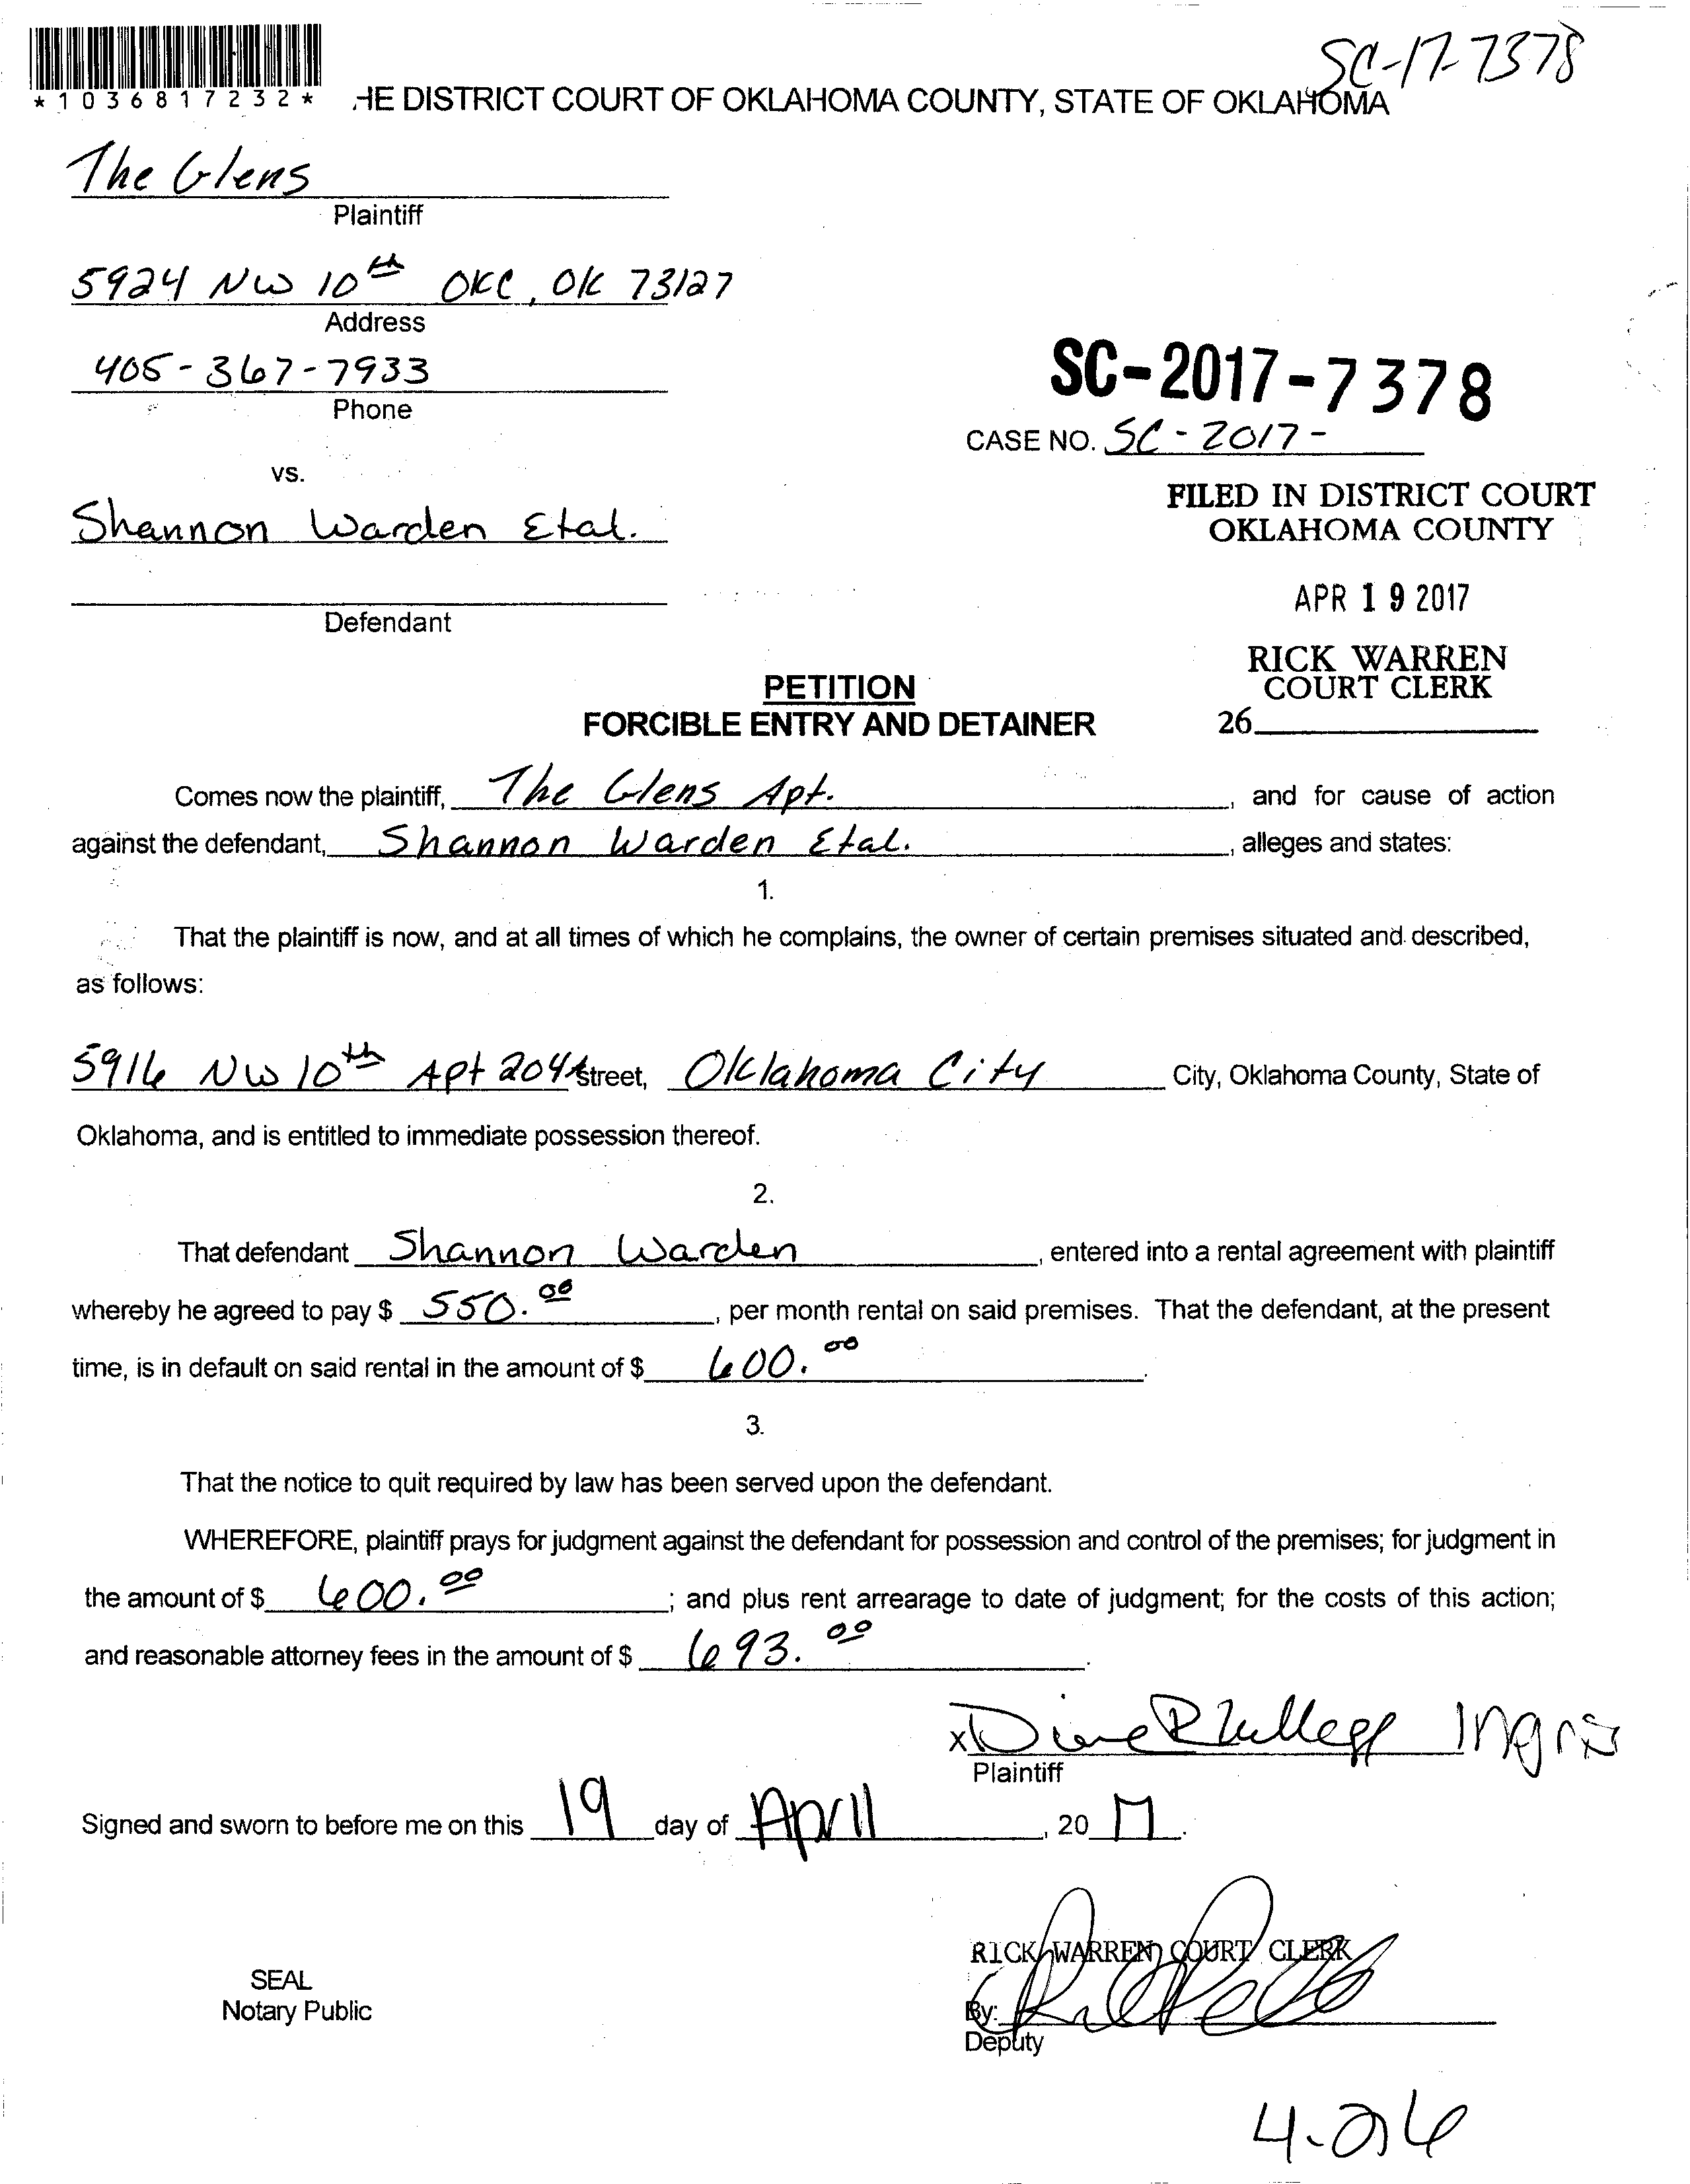 SC-17-7378
*1036817232*
HE DISTRICT COURT OF OKLAHOMA COUNTY, STATE OF OKLAHOMA
The Glens
Plaintiff
5924 NW 10th OKC, OK 73127
Address
405-367-7933
Phone
SC-2017-7378
CASE NO. SC-2017-
vs.
Shannon Warden Etal.
FILED IN DISTRICT COURT
OKLAHOMA COUNTY
APR 19 2017
Defendant
RICK WARREN
COURT CLERK
26
PETITION
FORCIBLE ENTRY AND DETAINER
Comes now the plaintiff, The Glens Apt. , and for cause of action
against the defendant, Shannon Warden Etal. , alleges and states:
1.
That the plaintiff is now, and at all times of which he complains, the owner of certain premises situated and described,
as follows:
5916 NW 10th Apt 204 street, Oklahoma City City, Oklahoma County, State of
Oklahoma, and is entitled to immediate possession thereof.
2.
That defendant Shannon Warden , entered into a rental agreement with plaintiff
whereby he agreed to pay $ 550.00 , per month rental on said premises. That the defendant, at the present
time, is in default on said rental in the amount of $ 600.00 .
3.
That the notice to quit required by law has been served upon the defendant.
WHEREFORE, plaintiff prays for judgment against the defendant for possession and control of the premises; for judgment in
the amount of $ 600.00 ; and plus rent arrearage to date of judgment; for the costs of this action;
and reasonable attorney fees in the amount of $ 693.00 .
x
Plaintiff
Signed and sworn to before me on this 19 day of April , 20 17 .
RICK WARREN COURT CLERK
SEAL
Notary Public
By:
Deputy
4-26